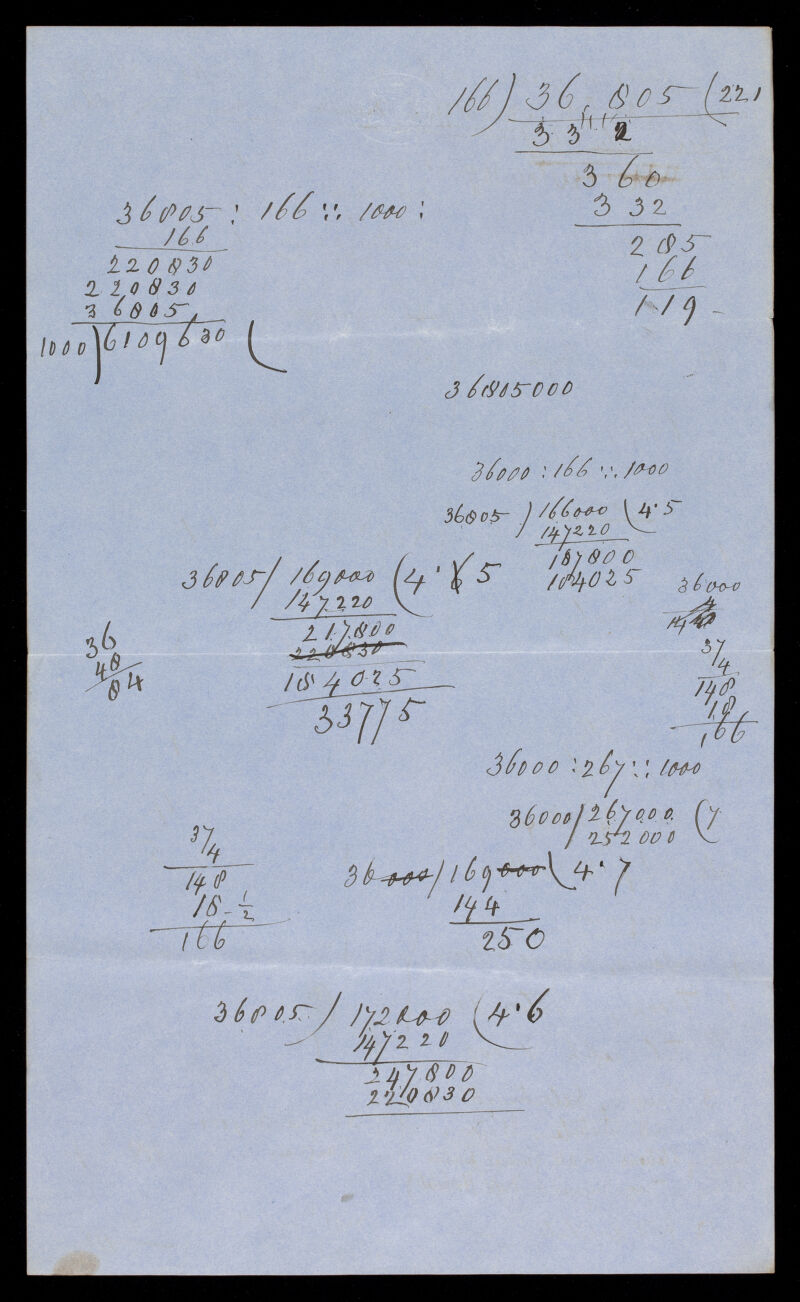 166) 36,805 (221
33 2
360
332
285
166
119
36805 : 166 :: 1000 :
166
220830
220830
36805
1000)6109630 (
36805000
36000 : 166 :: 1000
36805 ) 166000 ( 4·5
147220
187800
184025
36805 / 169000 ( 4·6 5
147220
217800
220830
184025
33775
36
48
84
36000
4
37
4
148
18
166
36000 : 267 :: 1000
36000 / 267000 ( 7
252000
37
4
148
18 - 1/2
166
36000 / 169000 ( 4·7
144
250
36805 ) 172000 ( 4·6
147220
247800
220830